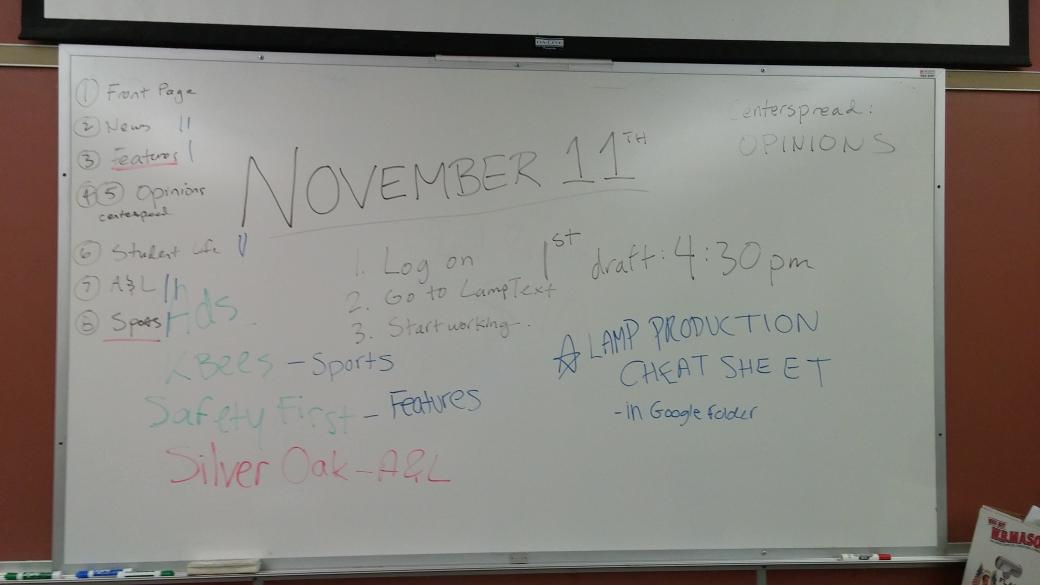 1 Front Page
2 News
3 Features
4 5 Opinions
centerspread
6 Student Life
7 A&L
8 Sports
NOVEMBER 11TH
Centerspread:
OPINIONS
1. Log on
2. Go to LampText
3. Start working
1st draft: 4:30pm
Ads
KBees - Sports
Safety First - Features
Silver Oak - A&L
LAMP PRODUCTION
CHEAT SHEET
- in Google folder